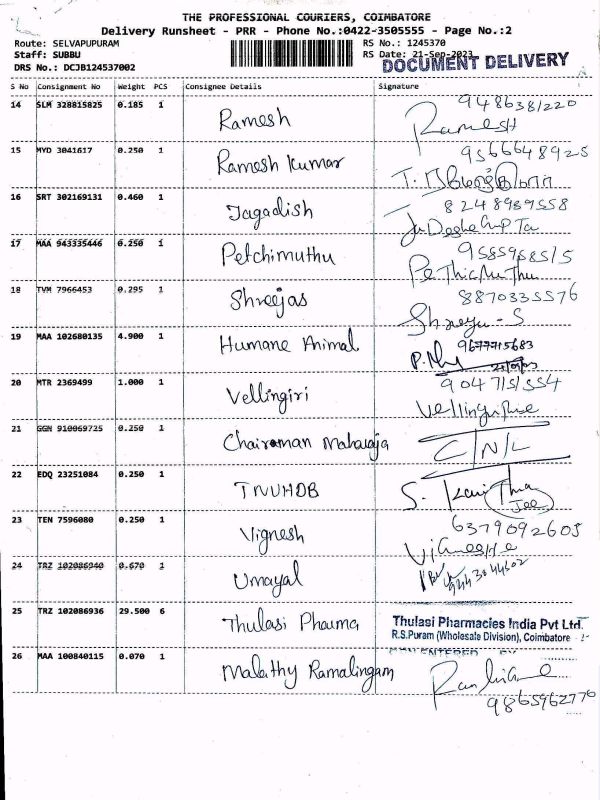 THE PROFESSIONAL COURIERS, COIMBATORE
Delivery Runsheet - PRR - Phone No.:0422-3505555 - Page No.:2
Route: SELVAPUPURAM RS No.: 1245370
Staff: SUBBU RS Date: 21-Sep-2023
DRS No.: DCJB124537002 DOCUMENT DELIVERY
S No Consignment No Weight PCS Consignee Details Signature
14 SLM 328815825 0.185 1 Ramesh 9486381220
Ramesh
15 MYD 3041617 0.250 1 Ramesh Kumar 9566648925
16 SRT 302169131 0.460 1 Jagadish 8248989558
17 MAA 943335446 0.250 1 Petchimuthu 9585968515
18 TVM 7966453 0.295 1 Shreejas 8870335576
19 MAA 102680135 4.900 1 Humane Animal 9677715683
20 MTR 2369499 1.000 1 Vellingiri 9047151554
21 GGN 910069725 0.250 1 Chairaman Maharaja
C/N/L
22 EDQ 23251084 0.250 1 TNUHDB
23 TEN 7596080 0.250 1 Vignesh 6379092605
24 TRZ 102086940 0.670 1 Umayal 9443044602
25 TRZ 102086936 29.500 6 Thulasi Pharma Thulasi Pharmacies India Pvt Ltd.
R.S.Puram (Wholesale Division), Coimbatore
26 MAA 100840115 0.070 1 Malathy Ramalingam
9865962770